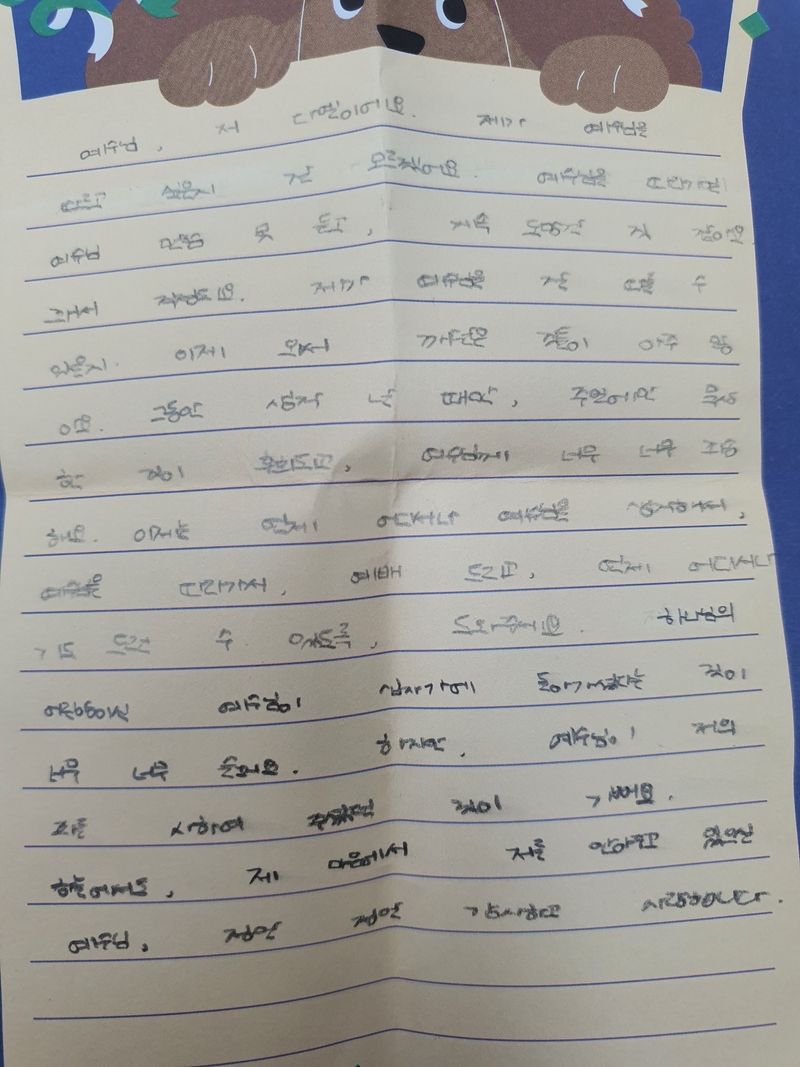 예수님, 저 다열이에요. 제가 예수님을
따르고 싶은지 잘 모르겠어요. 예수님을 따라가면
예수님 만을 못 듣고, 지옥 갈
것 같아요
그래서 걱정도요. 제가 예수님을 잘 따를 수
있을지. 이제 와서 깨달은 것들이 아주 많
아요. 그동안 십자 때만, 주일에만 묵상
한 것이 후회되고, 예수님께 너무 너무 죄송
해요. 이제는 언제 어디서나 예수님을 생각하며,
예수님을 따라가서, 예배 드리고, 언제 어디서나
기도 드릴 수 있도록, 도와주세요. 하나님의
예수님이 십자가에 돌아가셨다는 것이
너무 너무 슬퍼요. 하지만, 예수님이 저의
죄를 사하여 주셨던 것이 기뻐요.
하늘에서도, 제 마음에서 저를 안아주고 있으신
예수님, 정말 정말 감사하고 사랑합니다.